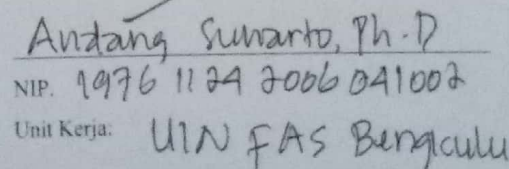 Andang Sunarto, Ph.D
NIP. 19761124 2006041002
Unit Kerja: UIN FAS Bengkulu